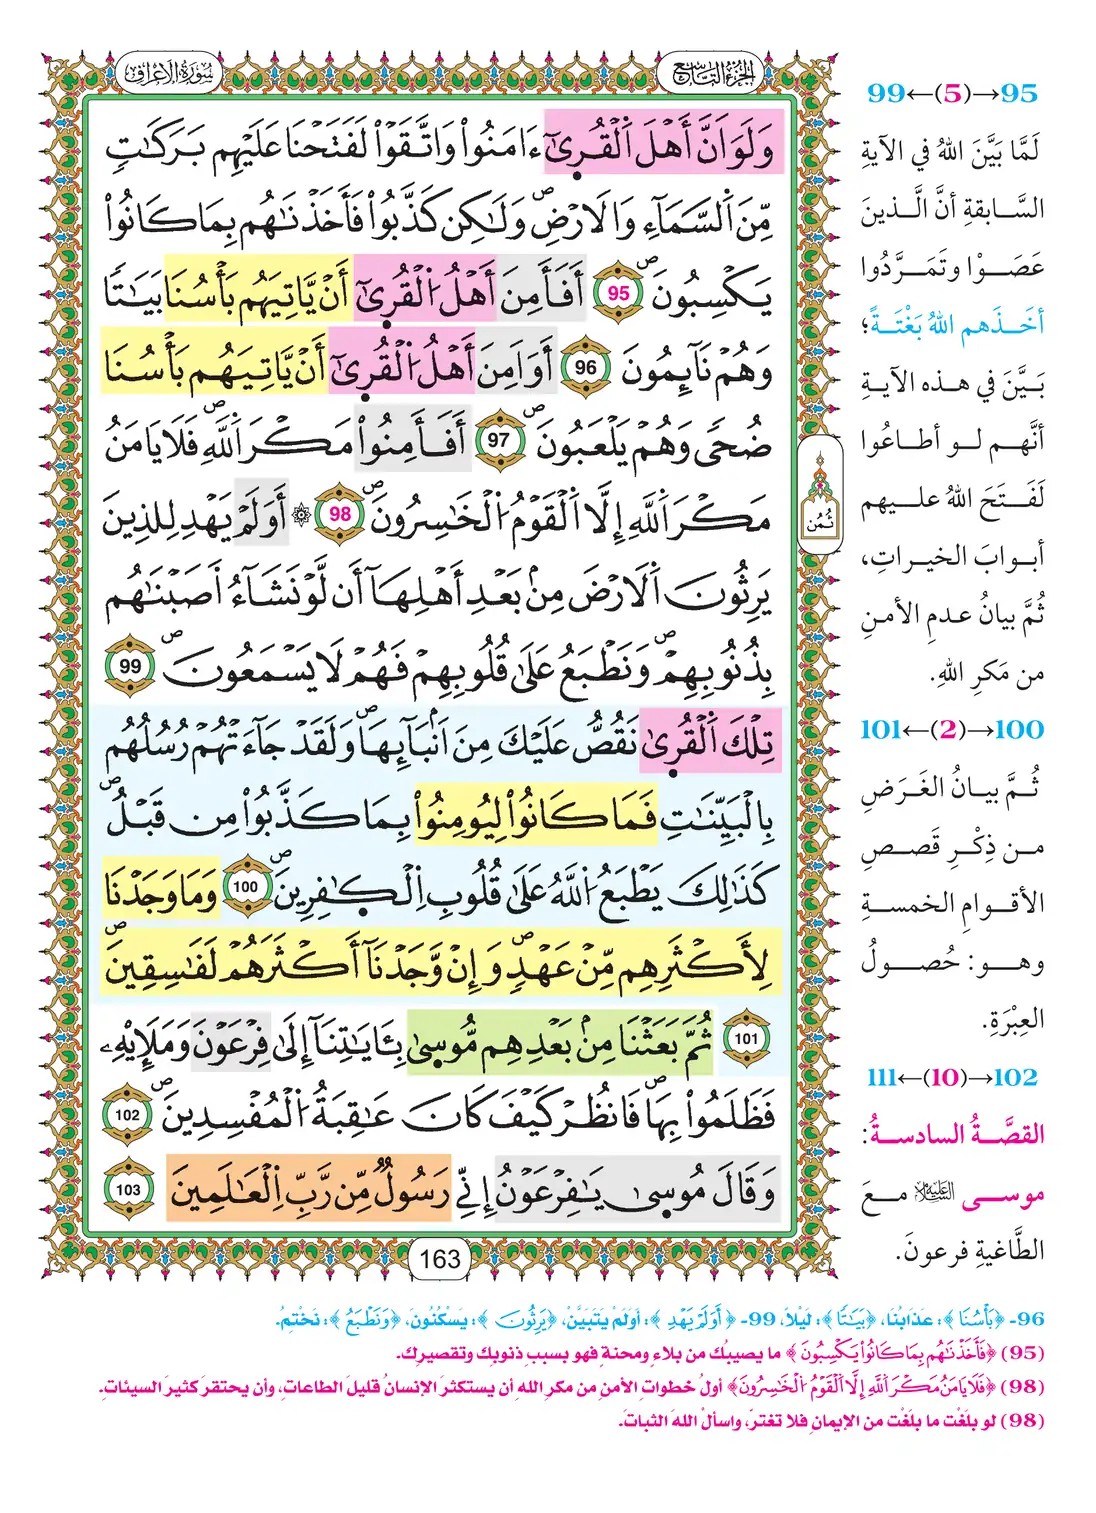 الجزء التاسع
سورة الاعراف
وَلَوَ اَنَّ أَهْلَ اَ۬لْقُر۪ىٰٓ ءَامَنُواْ وَاتَّقَوْاْ لَفَتَحْنَا عَلَيْهِم بَرَكَٰتٖ
مِّنَ اَ۬لسَّمَآءِ وَالَارْضِۖ وَلَٰكِن كَذَّبُواْ فَأَخَذْنَٰهُم بِمَا كَانُواْ
يَكْسِبُونَۖ 95 أَفَأَمِنَ أَهْلُ اُ۬لْقُر۪ىٰٓ أَنْ يَّاتِيَهُم بَأْسُنَا بَيَٰتاٗ
وَهُمْ نَآئِمُونَ 96 أَوَ اَمِنَ أَهْلُ اُ۬لْقُر۪ىٰٓ أَنْ يَّاتِيَهُم بَأْسُنَا
ضُحىٗ وَهُمْ يَلْعَبُونَۖ 97 أَفَأَمِنُواْ مَكْرَ اَ۬للَّهِۖ فَلَا يَامَنُ
مَكْرَ اَ۬للَّهِ إِلَّا اَ۬لْقَوْمُ اُ۬لْخَٰسِرُونَۖ 98 ۞ أَوَلَمْ يَهْدِ لِلذِينَ
يَرِثُونَ اَ۬لَارْضَ مِنۢ بَعْدِ أَهْلِهَآ أَن لَّوْ نَشَآءُ اَصَبْنَٰهُم
بِذُنُوبِهِمْۖ وَنَطْبَعُ عَلَىٰ قُلُوبِهِمْ فَهُمْ لَا يَسْمَعُونَۖ 99
تِلْكَ اَ۬لْقُر۪ىٰ نَقُصُّ عَلَيْكَ مِنَ اَنۢبَآئِهَاۖ وَلَقَدْ جَآءَتْهُمْ رُسُلُهُم
بِالْبَيِّنَٰتِ فَمَا كَانُواْ لِيُومِنُواْ بِمَا كَذَّبُواْ مِن قَبْلُۖ
كَذَٰلِكَ يَطْبَعُ اُ۬للَّهُ عَلَىٰ قُلُوبِ اِ۬لْكٰ۪فِرِينَۖ 100 وَمَا وَجَدْنَا
لِأَكْثَرِهِم مِّنْ عَهْدٖۖ وَإِنْ وَّجَدْنَآ أَكْثَرَهُمْ لَفَٰسِقِينَۖ
101 ثُمَّ بَعَثْنَا مِنۢ بَعْدِهِم مُّوس۪ىٰ بِـَٔايَٰتِنَآ إِلَىٰ فِرْعَوْنَ وَمَلَإِيْهِۦ
فَظَلَمُواْ بِهَاۖ فَانظُرْ كَيْفَ كَانَ عَٰقِبَةُ اُ۬لْمُفْسِدِينَۖ 102
وَقَالَ مُوس۪ىٰ يَٰفِرْعَوْنُ إِنِّے رَسُولٞ مِّن رَّبِّ اِ۬لْعَٰلَمِينَ 103
ثُمُن
163
95→(5)←99
لَمَّا بَيَّنَ اللهُ في الآيةِ
السَّابقةِ أنَّ الَّذينَ
عَصَوْا وتَمَرَّدُوا
أخَذَهم اللهُ بَغْتَةً؛
بَيَّنَ في هذه الآيةِ
أنَّهم لو أطاعُوا
لَفَتَحَ اللهُ عليهم
أبوابَ الخيراتِ،
ثُمَّ بيانُ عدمِ الأمنِ
من مَكرِ اللهِ.
100→(2)←101
ثُمَّ بيانُ الغَرَضِ
من ذِكْرِ قَصصِ
الأقوامِ الخمسةِ
وهو: حُصولُ
العِبْرَةِ.
102→(10)←111
القصَّةُ السادسةُ:
موسى عليه السلام معَ
الطَّاغيةِ فرعونَ.
96- ﴿بَأْسُنَا﴾: عَذَابُنَا، ﴿بَيَٰتاٗ﴾: لَيْلاً، 99- ﴿أَوَلَمْ يَهْدِ﴾: أَوَلَمْ يَتَبَيَّنْ، ﴿يَرِثُونَ﴾: يَسْكُنُونَ، ﴿وَنَطْبَعُ﴾: نَخْتِمُ.
(95) ﴿فَأَخَذْنَٰهُم بِمَا كَانُواْ يَكْسِبُونَ﴾ ما يصيبُك من بلاءٍ ومحنةٍ فهو بسببِ ذنوبِك وتقصيرِك.
(98) ﴿فَلَا يَامَنُ مَكْرَ اَ۬للَّهِ إِلَّا اَ۬لْقَوْمُ اُ۬لْخَٰسِرُونَ﴾ أولُ خطواتِ الأمنِ من مكرِ الله أن يستكثرَ الإنسانُ قليلَ الطاعاتِ، وأن يحتقرَ كثيرَ السيئاتِ.
(98) لو بلَغْت ما بلَغْت من الإيمانِ فلا تغترَّ، واسألْ اللهَ الثباتَ.